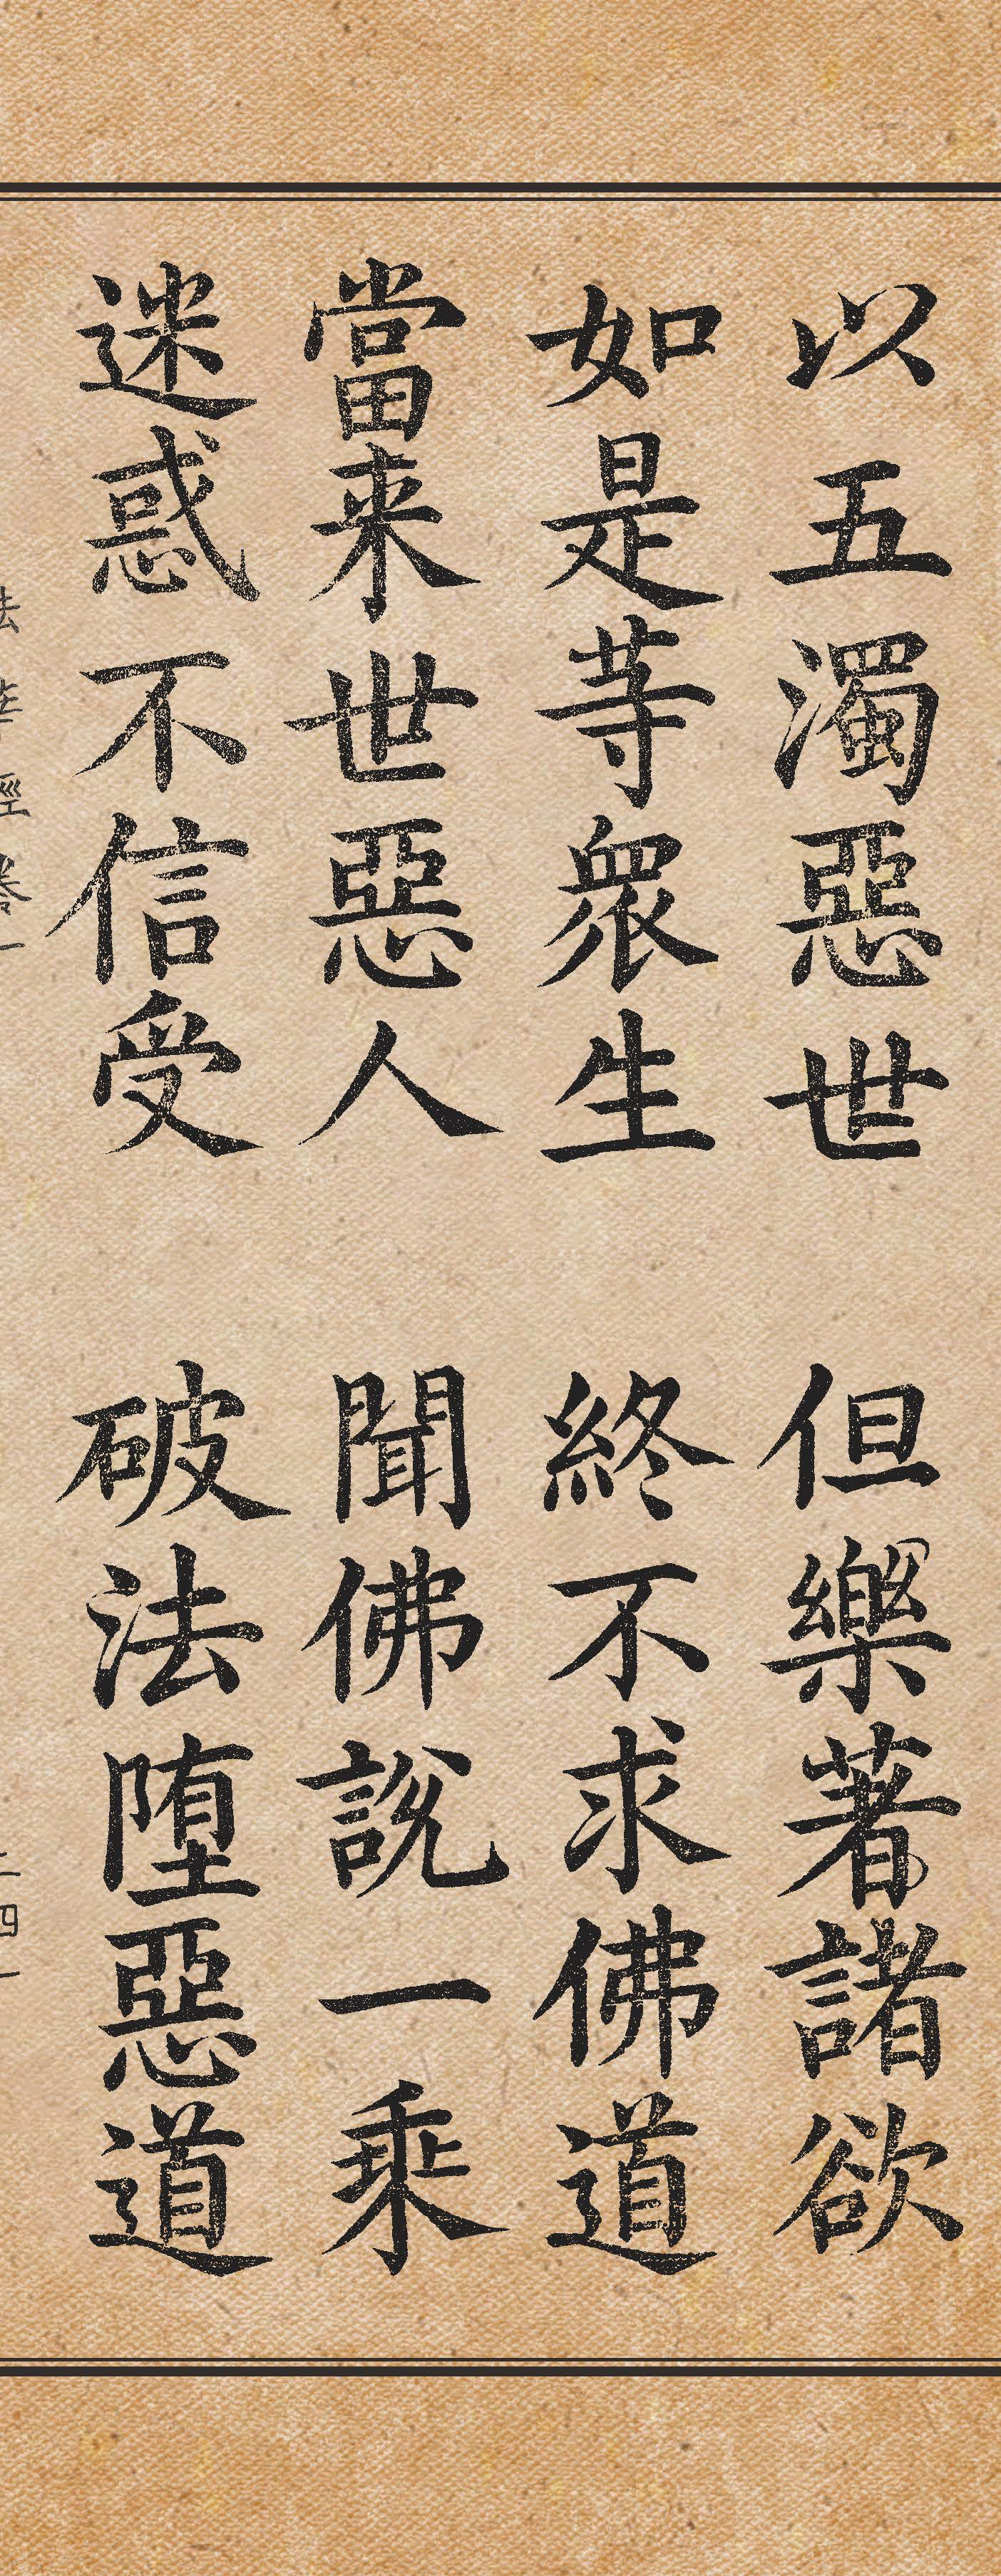 以五濁惡世 但樂著諸欲
如是等眾生 終不求佛道
當来世惡人 聞佛說一乘
迷惑不信受 破法堕惡道
法華經卷一 二四一